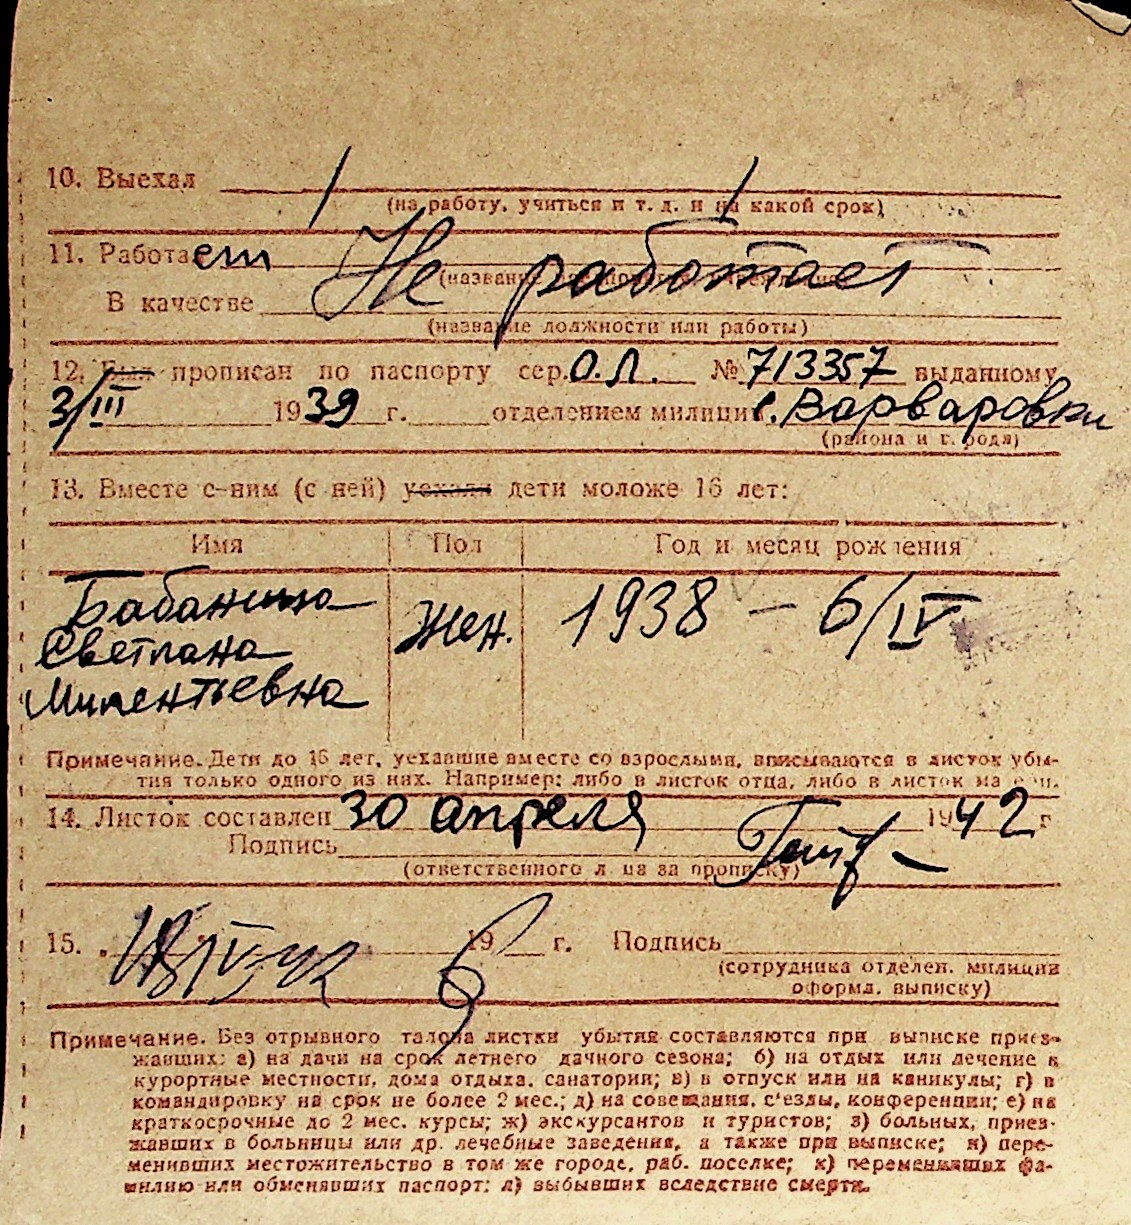 10. Выехал
(на работу, учиться и т. д. и на какой срок)
11. Работает Не работает
В качестве
(название должности или работы)
12. Был прописан по паспорту сер. О.Л. № 713357 выданному
3/III 1939 г. отделением милиции с. Варваровки
(района и города)
13. Вместе с ним (с ней) уехали дети моложе 16 лет:
Имя Пол Год и месяц рождения
Бабанина Жен. 1938 – 6/IV
Светлана
Милентьевна
Примечание. Дети до 16 лет, уехавшие вместе со взрослыми, вписываются в листок убы-
тия только одного из них. Например: либо в листок отца, либо в листок матери.
14. Листок составлен 30 апреля 1942 г
Подпись
(ответственного лица за прописку)
15. 19 г. Подпись
(сотрудника отделен. милиции
оформл. выписку)
Примечание. Без отрывного талона листки убытия составляются при выписке приез-
жавших: а) на дачи на срок летнего дачного сезона; б) на отдых или лечение в
курортные местности, дома отдыха, санатории; в) в отпуск или на каникулы; г) в
командировку на срок не более 2 мес.; д) на совещания, с'езды, конференции; е) на
краткосрочные до 2 мес. курсы; ж) экскурсантов и туристов; з) больных, приез-
жавших в больницы или др. лечебные заведения, а также при выписке; и) пере-
менивших местожительство в том же городе, раб. поселке; к) переменивших фа-
милию или обменявших паспорт; л) выбывших вследствие смерти.